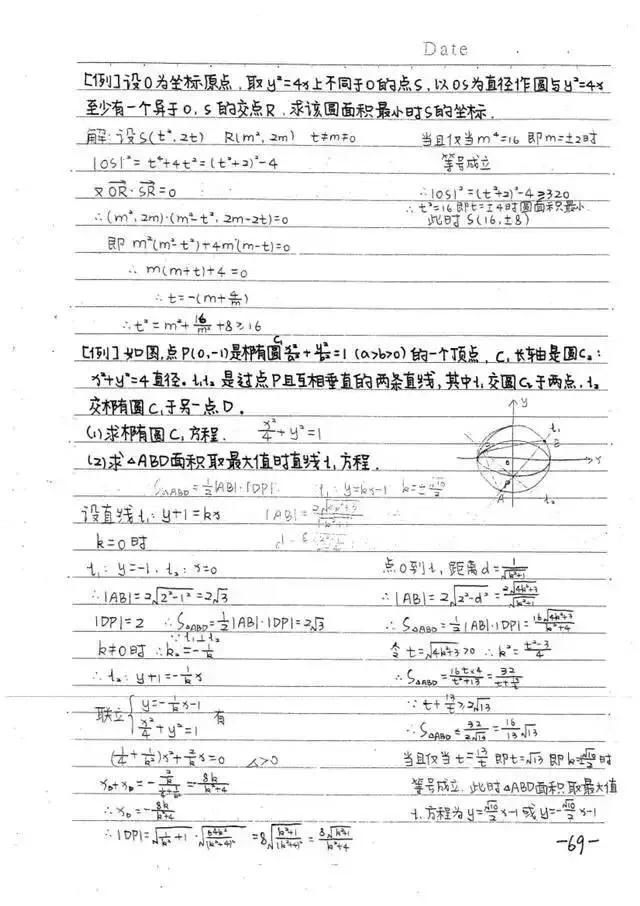 Date . .
[例]设O为坐标原点,取y²=4x上不同于O的点S,以OS为直径作圆与y²=4x
至少有一个异于O,S的交点R,求该圆面积最小时S的坐标.
解:设S(t²,2t) R(m²,2m) t≠m≠0
|OS|²=t⁴+4t²=(t²+2)²-4
又OR·SR=0
∴(m²,2m)·(m²-t²,2m-2t)=0
即 m²(m²-t²)+4m(m-t)=0
∴ m(m+t)+4=0
∴t=-(m+4/m)
∴t²=m²+16/m²+8≥16
当且仅当m⁴=16 即m=±2时
等号成立
∴|OS|²=(t²+2)²-4≥320
∴t²=16即t=±4时圆面积最小.
此时 S(16,±8)
[例]如图,点P(0,-1)是椭圆C₁x²/a²+y²/b²=1 (a>b>0)的一个顶点,C₁长轴是圆C₂:
x²+y²=4直径。l₁,l₂是过点P且互相垂直的两条直线,其中l₁交圆C₂于两点,l₂
交椭圆C₁于另一点D.
(1)求椭圆C₁方程. x²/4+y²=1
(2)求△ABD面积取最大值时直线l₁方程.
S△ABD=1/2|AB|·|DP| l₁:y=kx-1 k=±√10/2
设直线l₁:y+1=kx
k=0时
l₁:y=-1, l₂:x=0
∴|AB|=2√2²-1²=2√3
|DP|=2 ∴S△ABD=1/2|AB|·|DP|=2√3
∵l₁⊥l₂
k≠0时 ∴k₂=-1/k
∴l₂:y+1=-1/k x
联立{y=-1/k x-1
x²/4+y²=1 有
(1/4+1/k²)x²+2/k x=0 △>0
∴x_D=-8k/k²+4
∴|DP|=√1/k²+1·√64k²/(k²+4)²=8√k²+1/(k²+4)²=8√k²+1/k²+4
点O到l₁距离d=1/√k²+1
∴|AB|=2√2²-d²=2√4k²+3/√k²+1
∴S△ABD=1/2|AB|·|DP|=16√4k²+3/k²+4
令t=√4k²+3>0 ∴k²=t²-3/4
∴S△ABD=16t×4/t²+13=
∵t+13/t≥2√13
∴S△ABD≤32/2√13=16/13√13
当且仅当t=13/t即t=√13即k=±√10/2时
等号成立.此时△ABD面积取最大值
l₁方程为y=√10/2x-1或y=-√10/2x-1
y
x
O
P
A
B
l₁
l₂
-69-